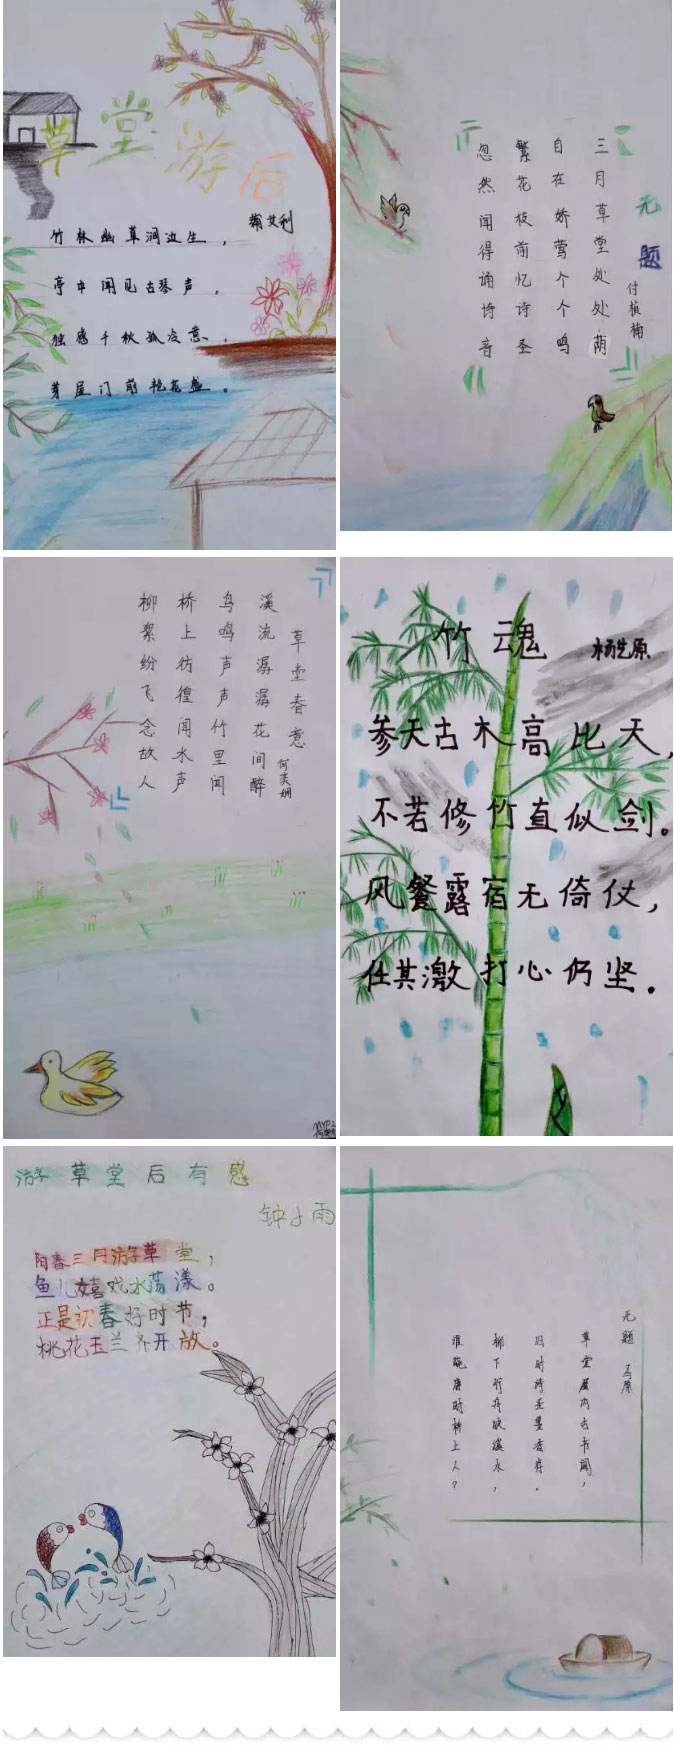 草堂游后
竹林幽草涧边生，
亭中闻见古琴声。
独感千秋孤冷意，
茅屋门前艳花盛。
无题
付桢楠
三月草堂处处荫
自在娇莺个个鸣
繁花枝前忆诗圣
忽然闻得诵诗音
草堂春意
何奕姗
溪流潺潺花间醉
鸟鸣声声竹里闻
桥上彷徨闻水声
柳絮纷飞念故人
竹魂
杨芝原
参天古木高比天，
不若修竹直似剑。
风餐露宿无倚仗，
任其激打心仍坚。
游草堂后有感
钟小雨
阳春三月游草堂，
鱼儿嬉戏水荡漾。
正是初春好时节，
桃花玉兰齐开放。
无题
马原
草堂屋内古书阁，
旧时诗圣墨香存。
柳下竹舟映溪水，
谁晓唐时桥上人？